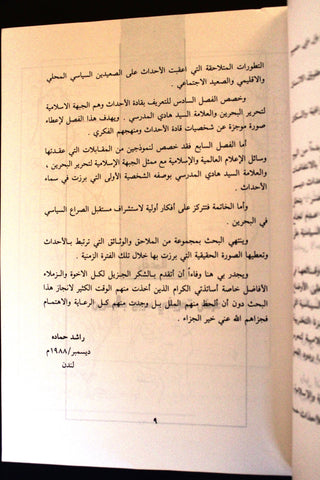 التطورات المتلاحقة التي اعقبت الأحداث على الصعيدين السياسي المحلي
والاقليمي والصعيد الاجتماعي .
وخصص الفصل السادس للتعريف بقادة الأحداث وهم الجبهة الاسلامية
لتحرير البحرين والعلامة السيد هادي المدرسي . ويهدف هذا الفصل لإعطاء
صورة موجزة عن شخصيات قادة الأحداث ومنهجهم الفكري .
أما الفصل السابع فقد خصص لنموذجين من المقابلات التي عقدتها
وسائل الإعلام العالمية والإسلامية مع ممثل الجبهة الإسلامية لتحرير البحرين ،
والعلامة السيد هادي المدرسي بوصفه الشخصية الأولى التي برزت في سماء
الأحداث .
وأما الخاتمة فتتركز على أفكار أولية لاستشراف مستقبل الصراع السياسي
في البحرين .
وينتهي البحث بمجموعة من الملاحق والوثائق التي ترتبط بالأحداث
وتعطيها الصورة الحقيقية التي برزت بها خلال تلك الفترة الزمنية .
ويجدر بي هنا وفاءاً أن أتقدم بالشكر الجزيل لكل الاخوة والزملاء
الأفاضل خاصة أساتذتي الكرام الذين أخذت منهم الوقت الكثير لانجاز هذا
البحث دون أن ألحظ منهم الملل بل وجدت منهم كل الرعاية والاهتمام
فجزاهم الله عني خير الجزاء .
راشد حماده
ديسمبر/١٩٨٨م
لندن
٩